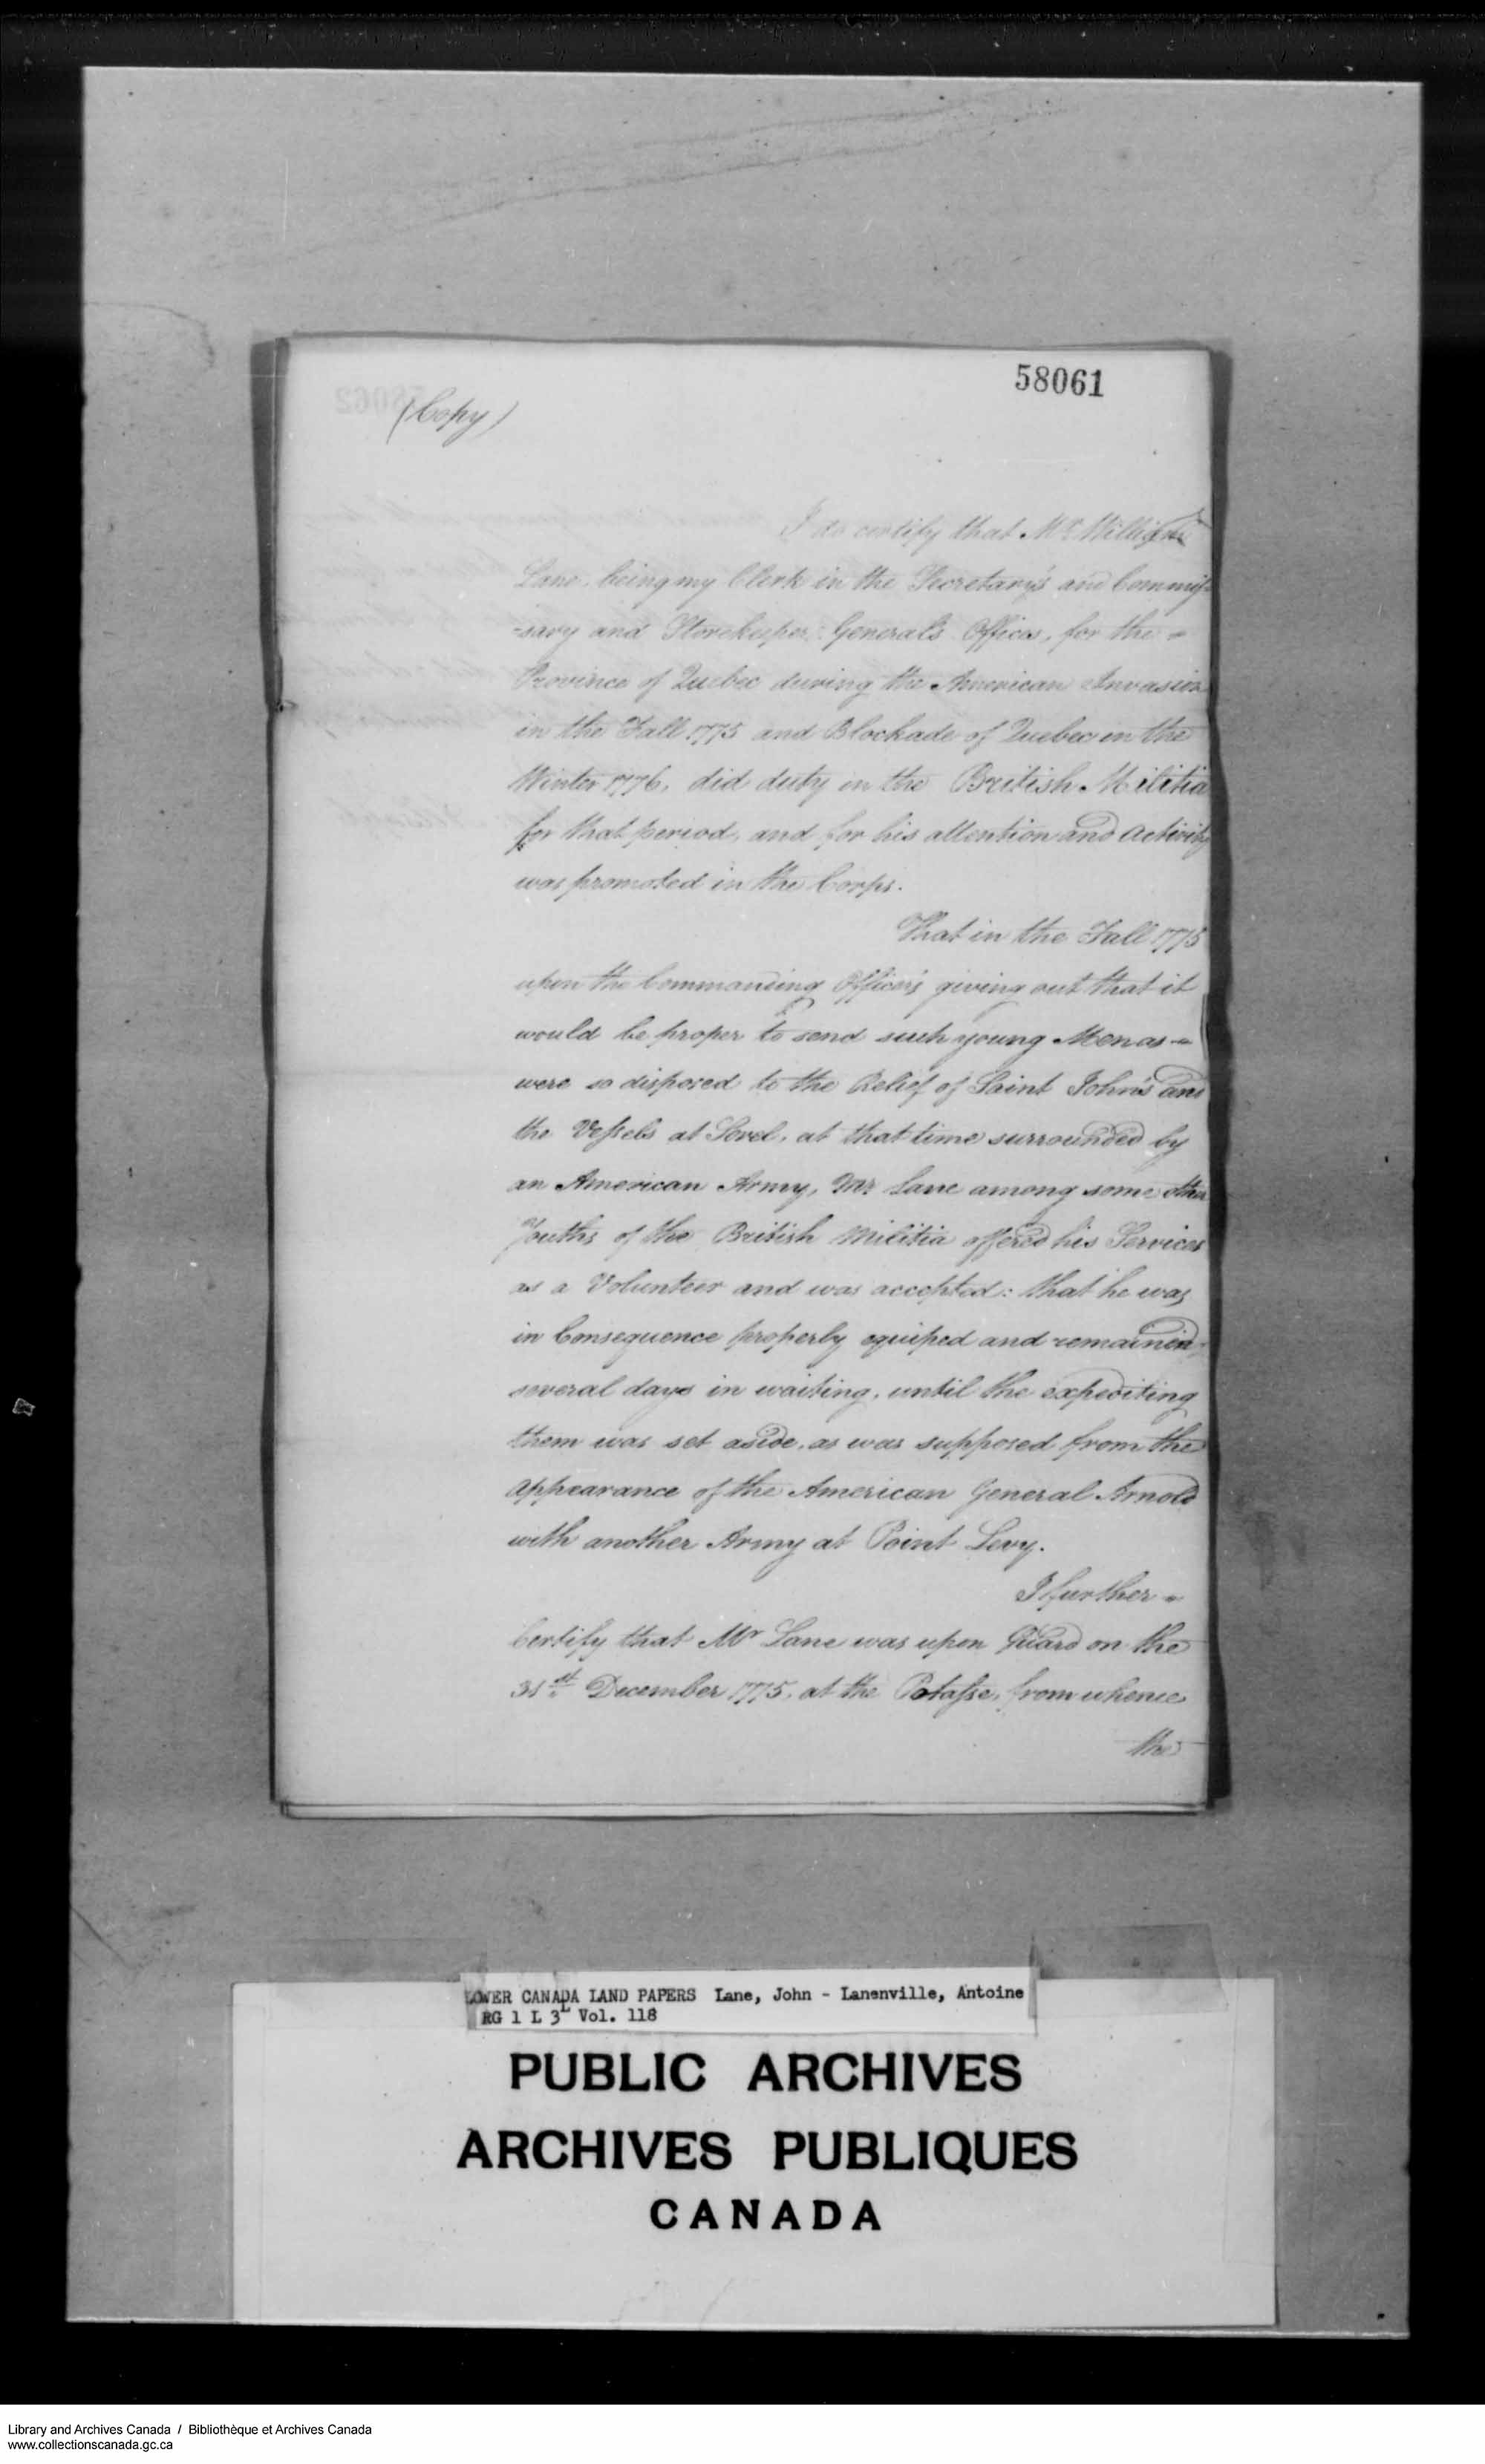 58061
(Copy)
I do certify that Mr William
Lane, being my Clerk in the Secretary's and Commis-
-sary and Storekeeper General's Offices, for the
Province of Quebec during the American Invasion
in the Fall 1775 and Blockade of Quebec in the
Winter 1776, did duty in the British Militia
for that period, and for his attention and activity
was promoted in the Corps.
That in the Fall 1775
upon the Commanding Officer's giving out that it
would be proper to send such young Men as
were so disposed to the Relief of Saint John's and
the Vessels at Sorel, at that time surrounded by
an American Army, Mr Lane among some other
Youths of the British Militia offered his Services
as a Volunteer and was accepted: that he was
in Consequence properly equiped and remained
several days in waiting, until the expediting
them was set aside, as was supposed from the
appearance of the American General Arnold
with another Army at Point Levy.
I further
Certify that Mr Lane was upon Guard on the
31st December 1775, at the Potasse, from whence
the
LOWER CANADA LAND PAPERS Lane, John - Lanenville, Antoine
RG 1 L 3L Vol. 118
PUBLIC ARCHIVES
ARCHIVES PUBLIQUES
CANADA
Library and Archives Canada / Bibliothèque et Archives Canada
www.collectionscanada.gc.ca